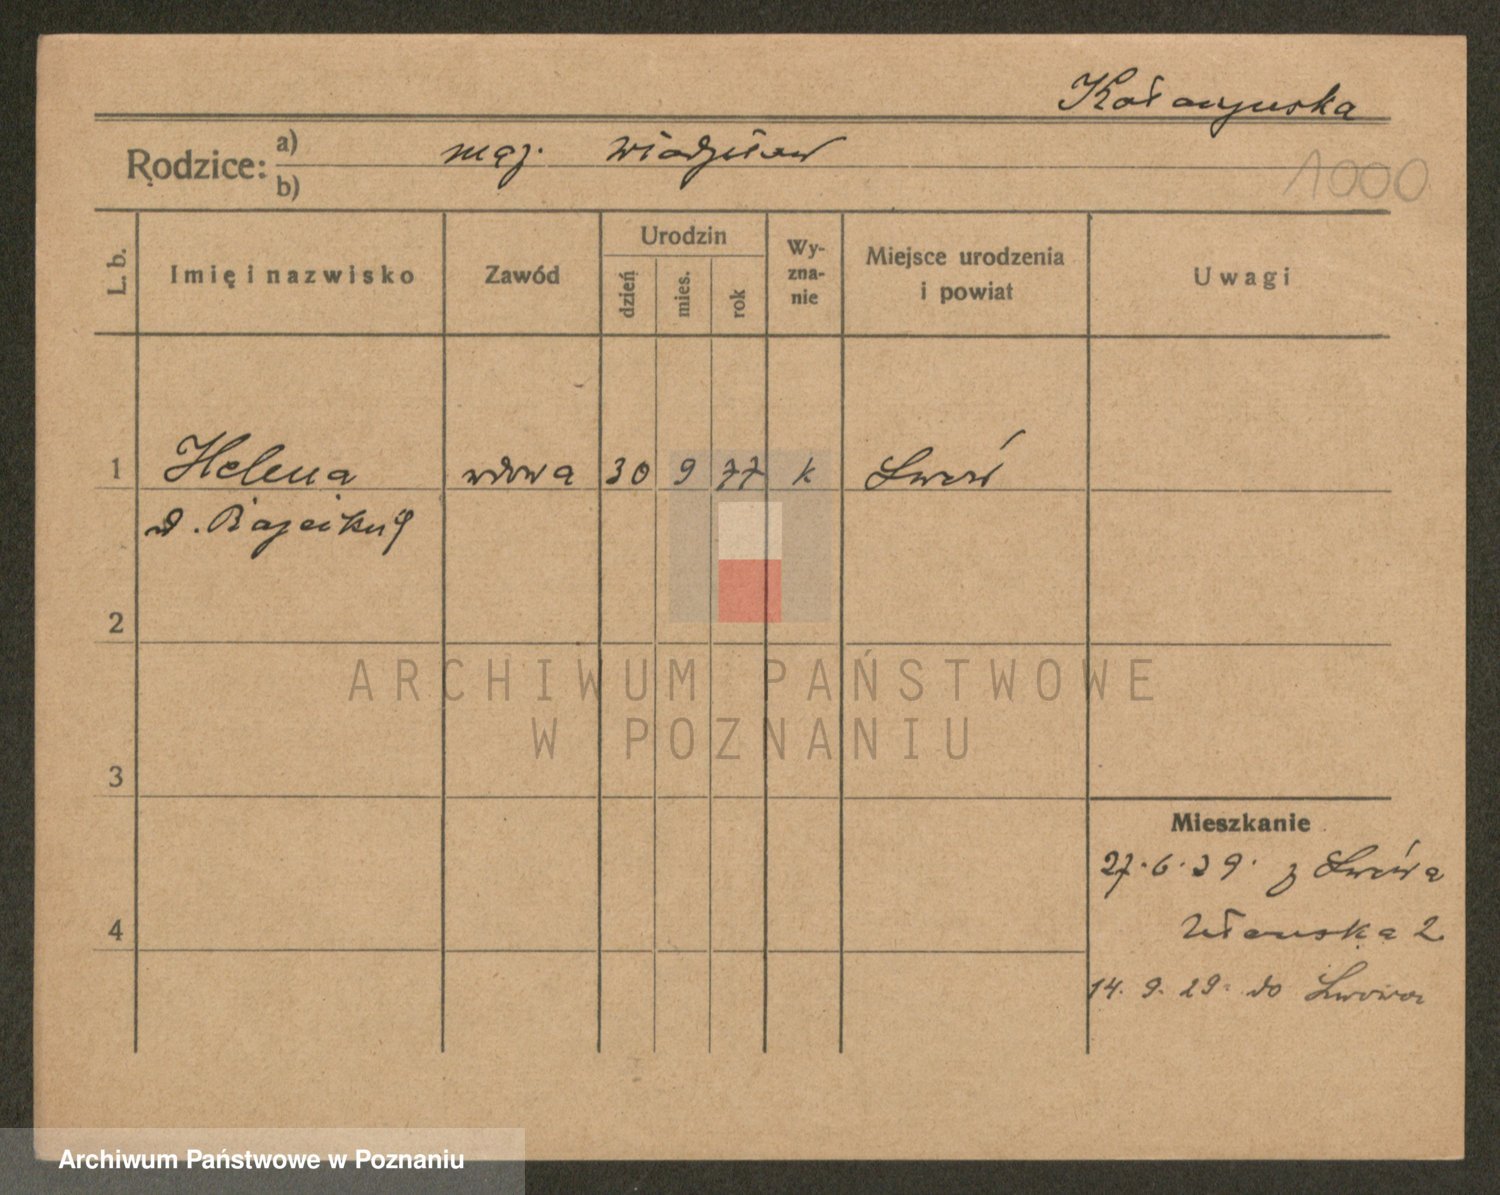 Kołaczyńska
Rodzice: a) mąż. Władysław
b)
1000
L. b.
Imię i nazwisko
Zawód
Urodzin
dzień
mies.
rok
Wy-
zna-
nie
Miejsce urodzenia
i powiat
Uwagi
1 Helena wdowa 30 9 77 k Lwów
d.
2
ARCHIWUM PAŃSTWOWE
W POZNANIU
3
Mieszkanie
27.6.29. z Lwówa
Ułańska 2
4
14. 9. 29. do Lwowa
Archiwum Państwowe w Poznaniu